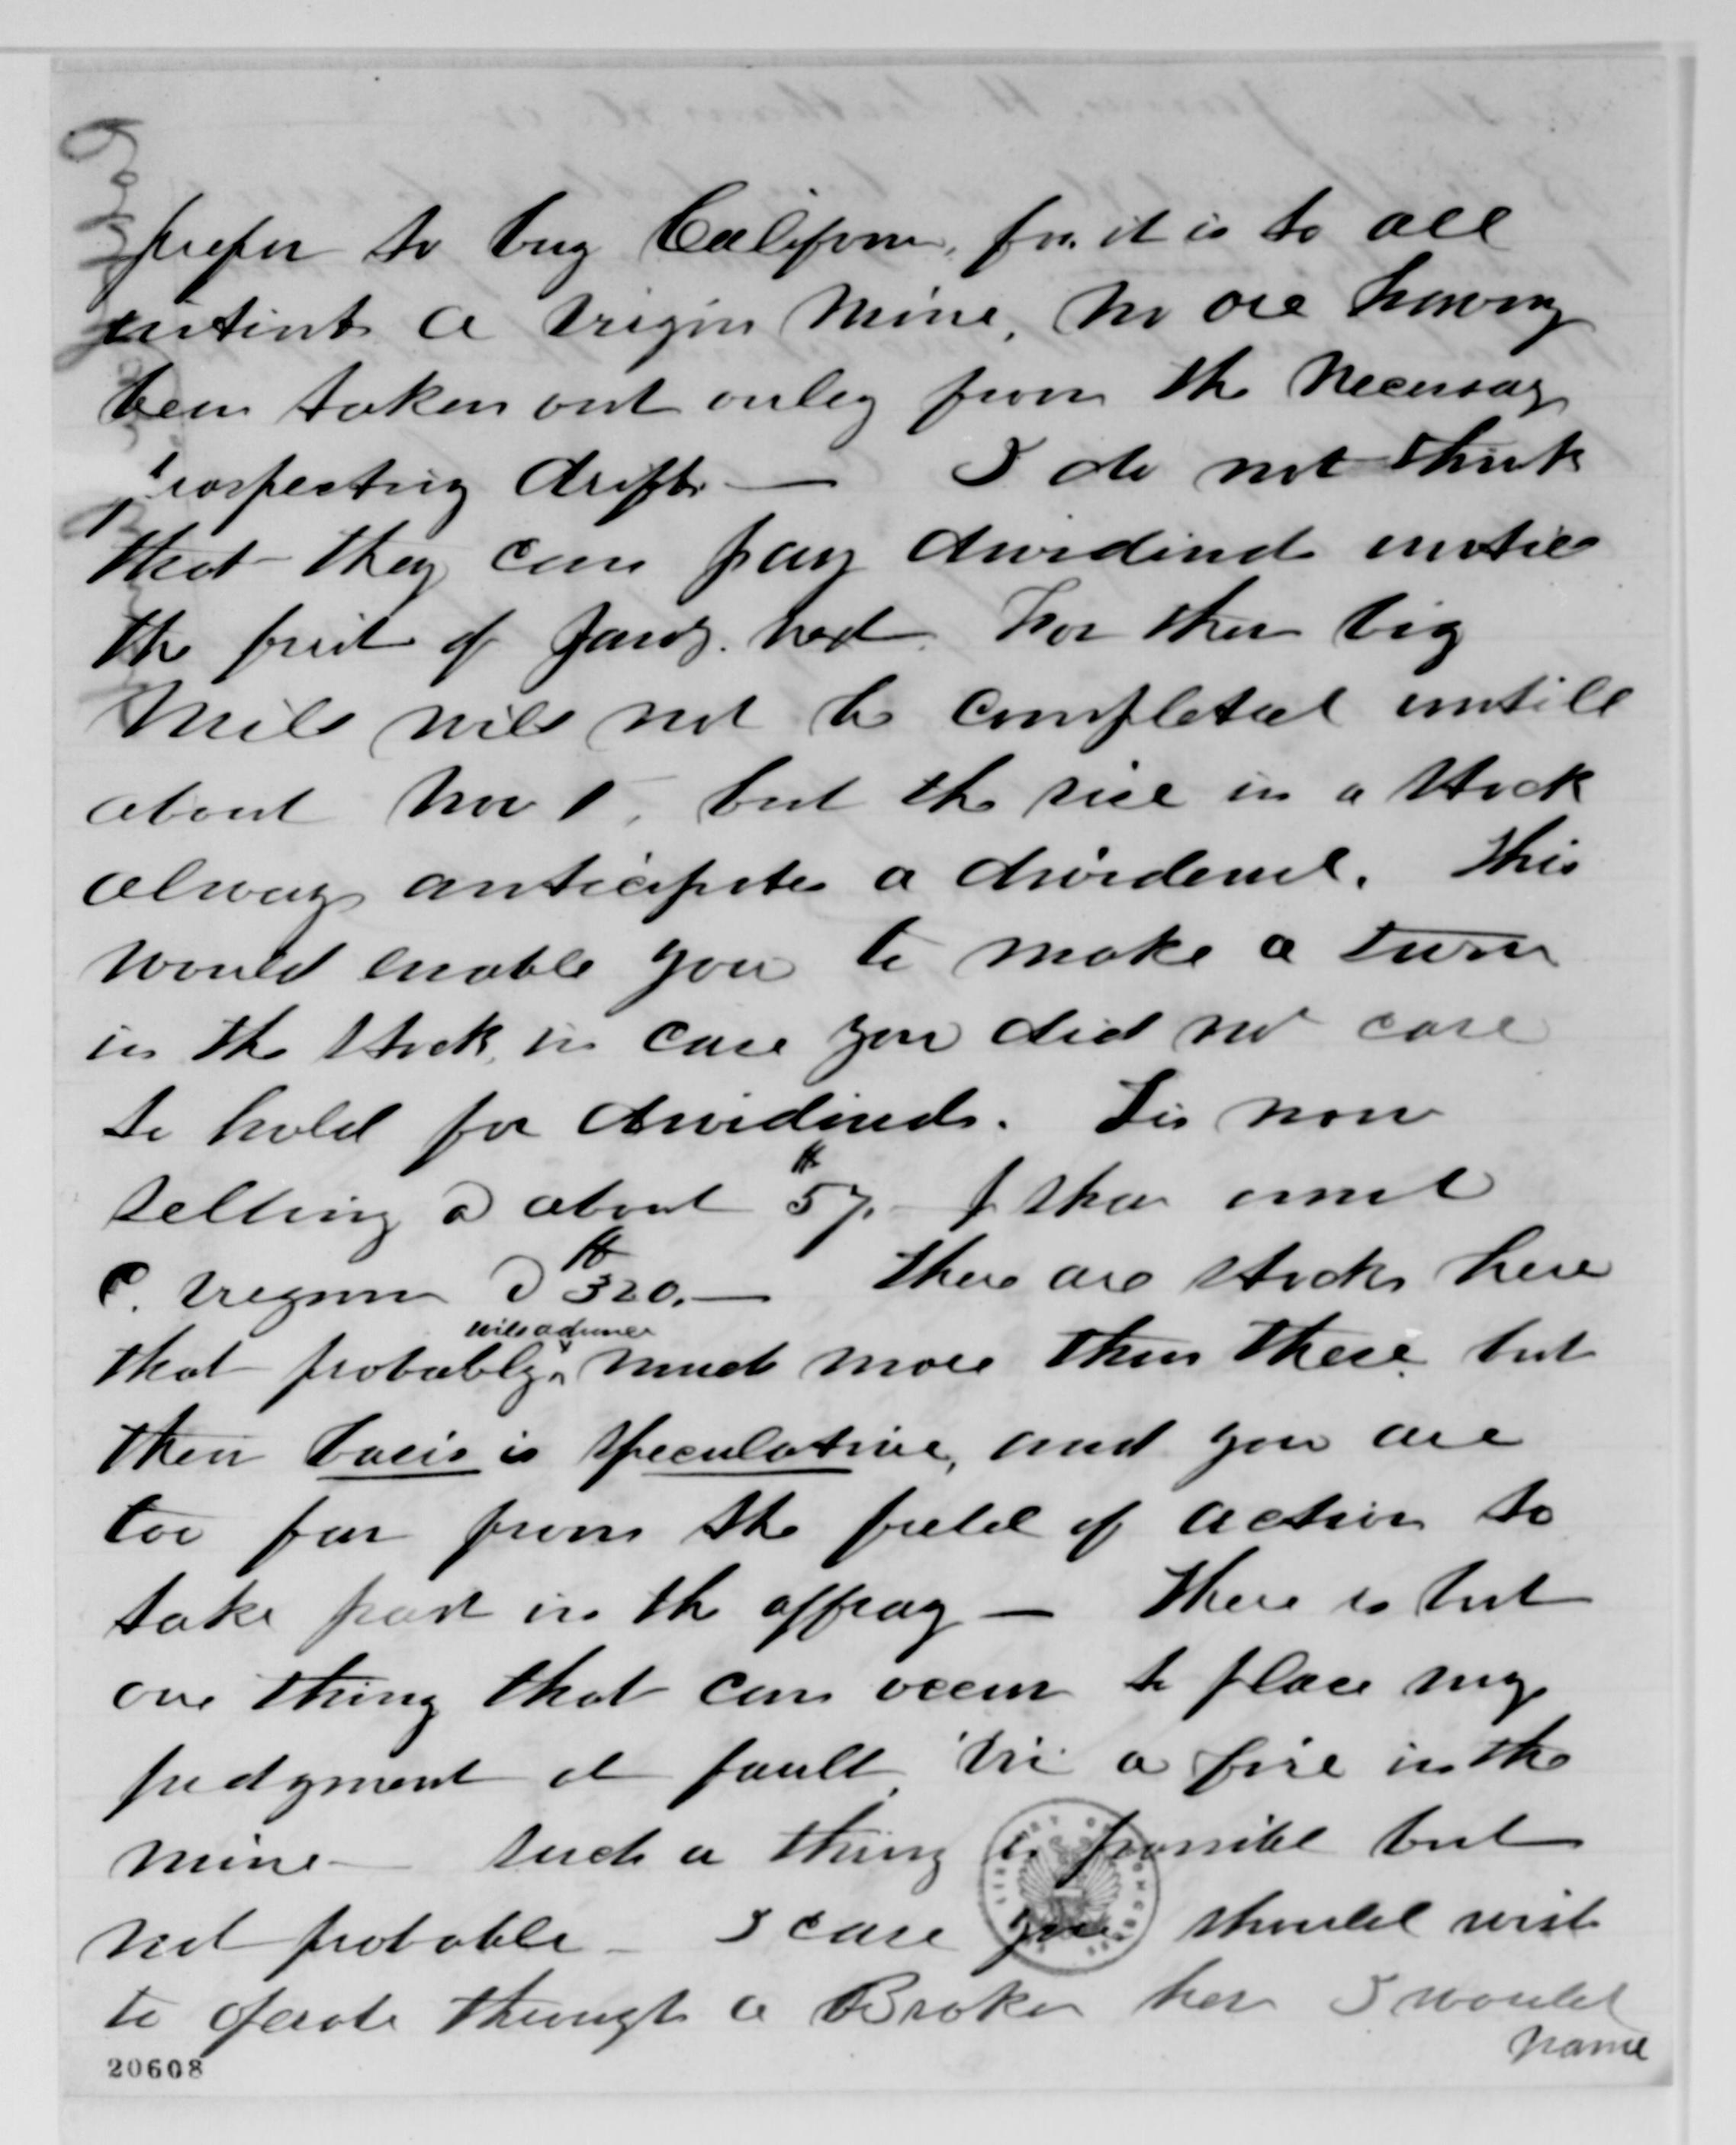 prefer to buy California, for it is to all
intents a virgin mine, no ore having
been taken out only from the necessary
prospecting drifts — I do not think
that they can pay dividend untill
the first of Jany. next. For their big
Mill will not be completed untill
about Nov 1, but the rise in a stock
always anticipates a dividend. This
would enable you to make a turn
in the stock, in case you did not care
to hold for dividends. Tis now
selling @ about $57. — share and
C. Virginia @ $320. — There are stocks here
that probably will advance much more than these, but
their basis is speculative, and you are
too far from the field of action to
take part in the affray — There is but
one thing that can occur to place my
judgment at fault, viz a fire in the
mine — Such a thing is possible but
not probable — I case you should wish
to operate through a Broker here I would
name
20608